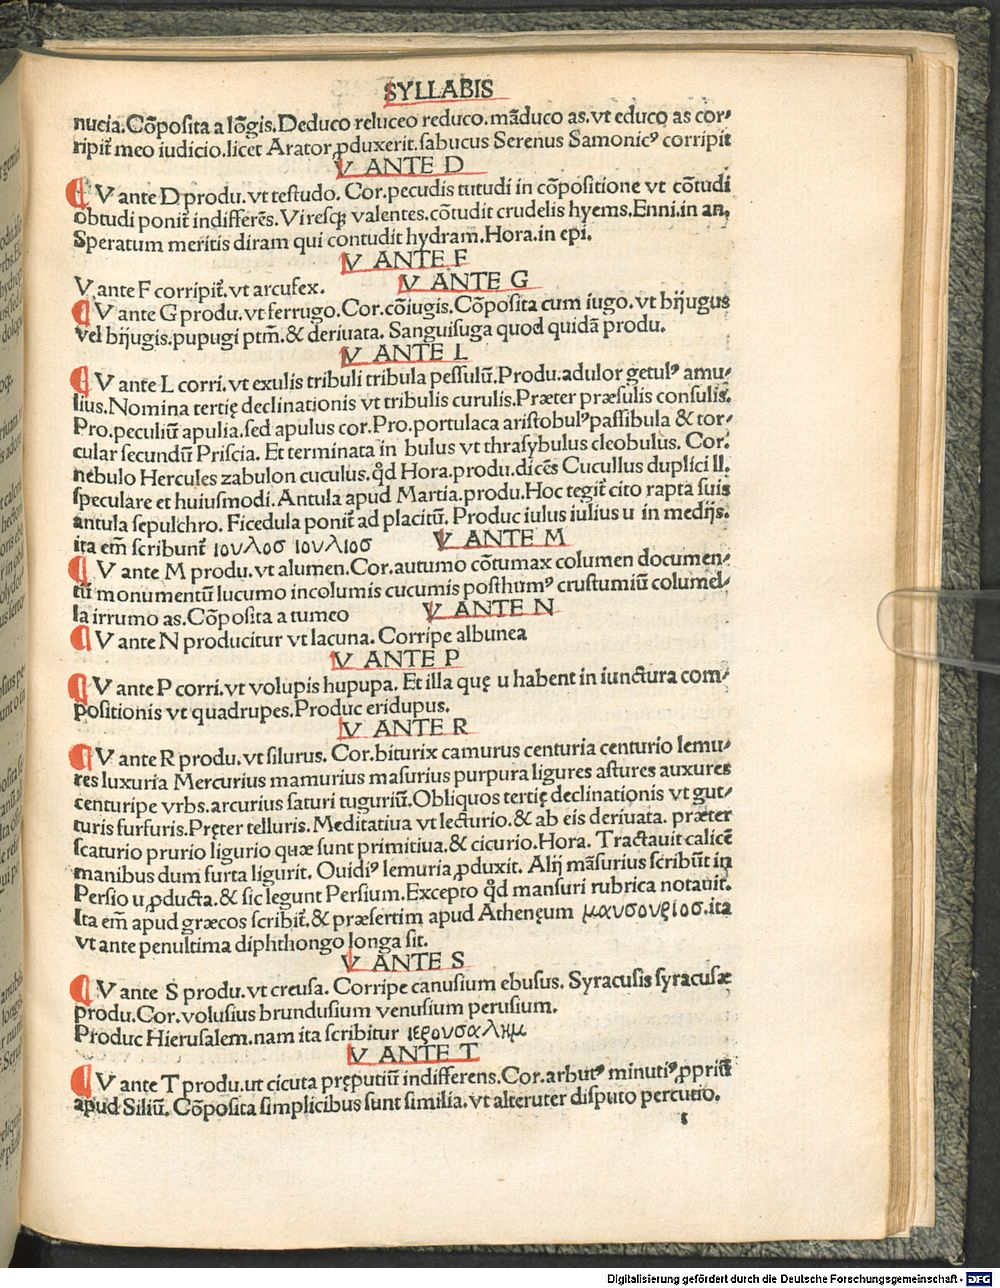 SYLLABIS
nucia.Cōposita a lōgis.Deduco reluceo reduco.māduco as.vt educo as cor⸗
ripit̃ meo iudicio.licet Arator ꝓduxerit.sabucus Serenus Samonicꝰ corripit
V ANTE D
V ante D produ.vt testudo. Cor.pecudis tutudi in cōpositione vt cōtudi
obtudi ponit̃ indifferēs. Viresqꝫ valentes.cōtudit crudelis hyems.Enni.in an.
Speratum meritis diram qui contudit hydram.Hora.in epi.
V ANTE F
V ante F corripit̃.vt arcufex.
V ANTE G
V ante G produ.vt ferrugo. Cor.cōiugis. Cōposita cum iugo. vt bijugus
vel bijugis.pupugi ptm̄.& deriuata. Sanguisuga quod quidā produ.
V ANTE L
V ante L corri.vt exulis tribuli tribula pessulū.Produ.adulor getulꝰ amu⸗
lius.Nomina tertię declinationis vt tribulis curulis.Præter præsulis consulis.
Pro.peculiū apulia.sed apulus cor.Pro.portulaca aristobulꝰpassibula & tor⸗
cular secundū Priscia. Et terminata in bulus vt thrasybulus cleobulus. Cor.
nebulo Hercules zabulon cuculus.qd̄ Hora.produ.dicēs Cucullus duplici ll.
speculare et huiusmodi.Antula apud Martia.produ.Hoc tegit̃ cito rapta suis
antula sepulchro. Ficedula ponit̃ ad placitū. Produc iulus iulius u in medijs.
ita em̄ scribunt̃ ιουλοσ ιουλιοσ
V ANTE M
V ante M produ.vt alumen.Cor.autumo cōtumax columen documen⸗
tū monumentū lucumo incolumis cucumis posthumꝰ crustumiū columel⸗
la irrumo as.Cōposita a tumeo
V ANTE N
V ante N producitur vt lacuna. Corripe albunea
V ANTE P
V ante P corri.vt volupis hupupa. Et illa quę u habent in iunctura com⸗
positionis vt quadrupes.Produc eridupus.
V ANTE R
V ante R produ.vt silurus. Cor.biturix camurus centuria centurio lemu⸗
res luxuria Mercurius mamurius masurius purpura ligures astures auxures
centuripe vrbs.arcurius saturi tuguriū.Obliquos tertię declinationis vt gut⸗
turis furfuris.Pręter telluris. Meditatiua vt lecturio.& ab eis deriuata. præter
scaturio prurio ligurio quæ sunt primitiua.& cicurio.Hora. Tractauit calicē
manibus dum furta ligurit. Ouidiꝰ lemuria ꝓduxit. Alij māsurius scribūt in
Persio u ꝓducta.& sic legunt Persium.Excepto qd̄ mansuri rubrica notauit.
Ita em̄ apud græcos scribit̃.& præsertim apud Athenęum μαυσουριοσ.ita
vt ante penultima diphthongo longa sit.
V ANTE S
V ante S produ.vt creusa. Corripe canusium ebusus. Syracusis syracusæ
produ.Cor.volusius brundusium venusium perusium.
Produc Hierusalem.nam ita scribitur ιερουσαλημ
V ANTE T
V ante T produ.ut cicuta pręputiū indifferens.Cor.arbutꝰ minutiꝰ ꝓpriū
apud Siliū. Cōposita simplicibus sunt similia.vt alteruter disputo percutio.
Digitalisierung gefördert durch die Deutsche Forschungsgemeinschaft - DFG